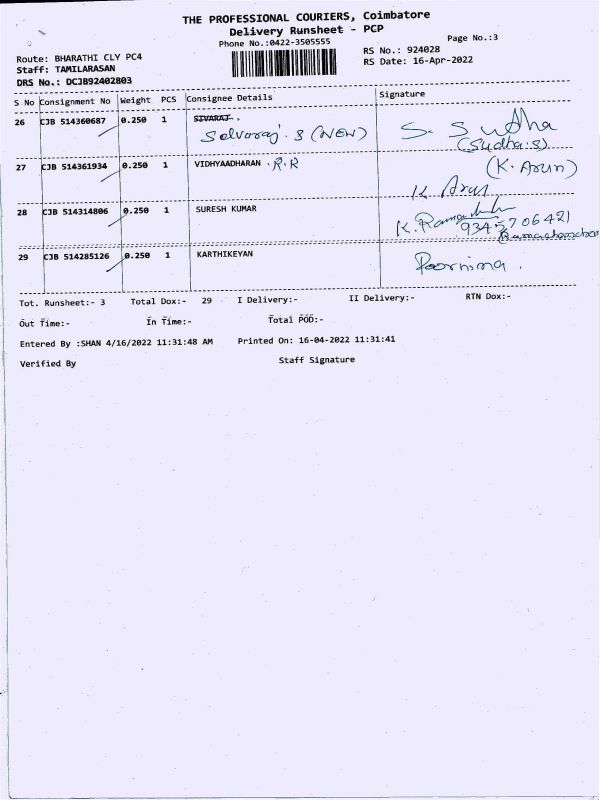 THE PROFESSIONAL COURIERS, Coimbatore
Delivery Runsheet - PCP
Phone No.:0422-3505555
Page No.:3
Route: BHARATHI CLY PC4
RS No.: 924028
Staff: TAMILARASAN
RS Date: 16-Apr-2022
DRS No.: DCJB92402803
S No Consignment No Weight PCS Consignee Details Signature
26 CJB 514360687 0.250 1 SIVARAJ.
Selvaraj. S (NEW) S. Sudha
(Sudha.S)
27 CJB 514361934 0.250 1 VIDHYAADHARAN . R.R (K. Arun)
K Arun
28 CJB 514314806 0.250 1 SURESH KUMAR
K.
9345706421
29 CJB 514285126 0.250 1 KARTHIKEYAN Poornima.
Tot. Runsheet:- 3 Total Dox:- 29 I Delivery:- II Delivery:- RTN Dox:-
Out Time:- In Time:- Total POD:-
Entered By :SHAN 4/16/2022 11:31:48 AM Printed On: 16-04-2022 11:31:41
Verified By Staff Signature